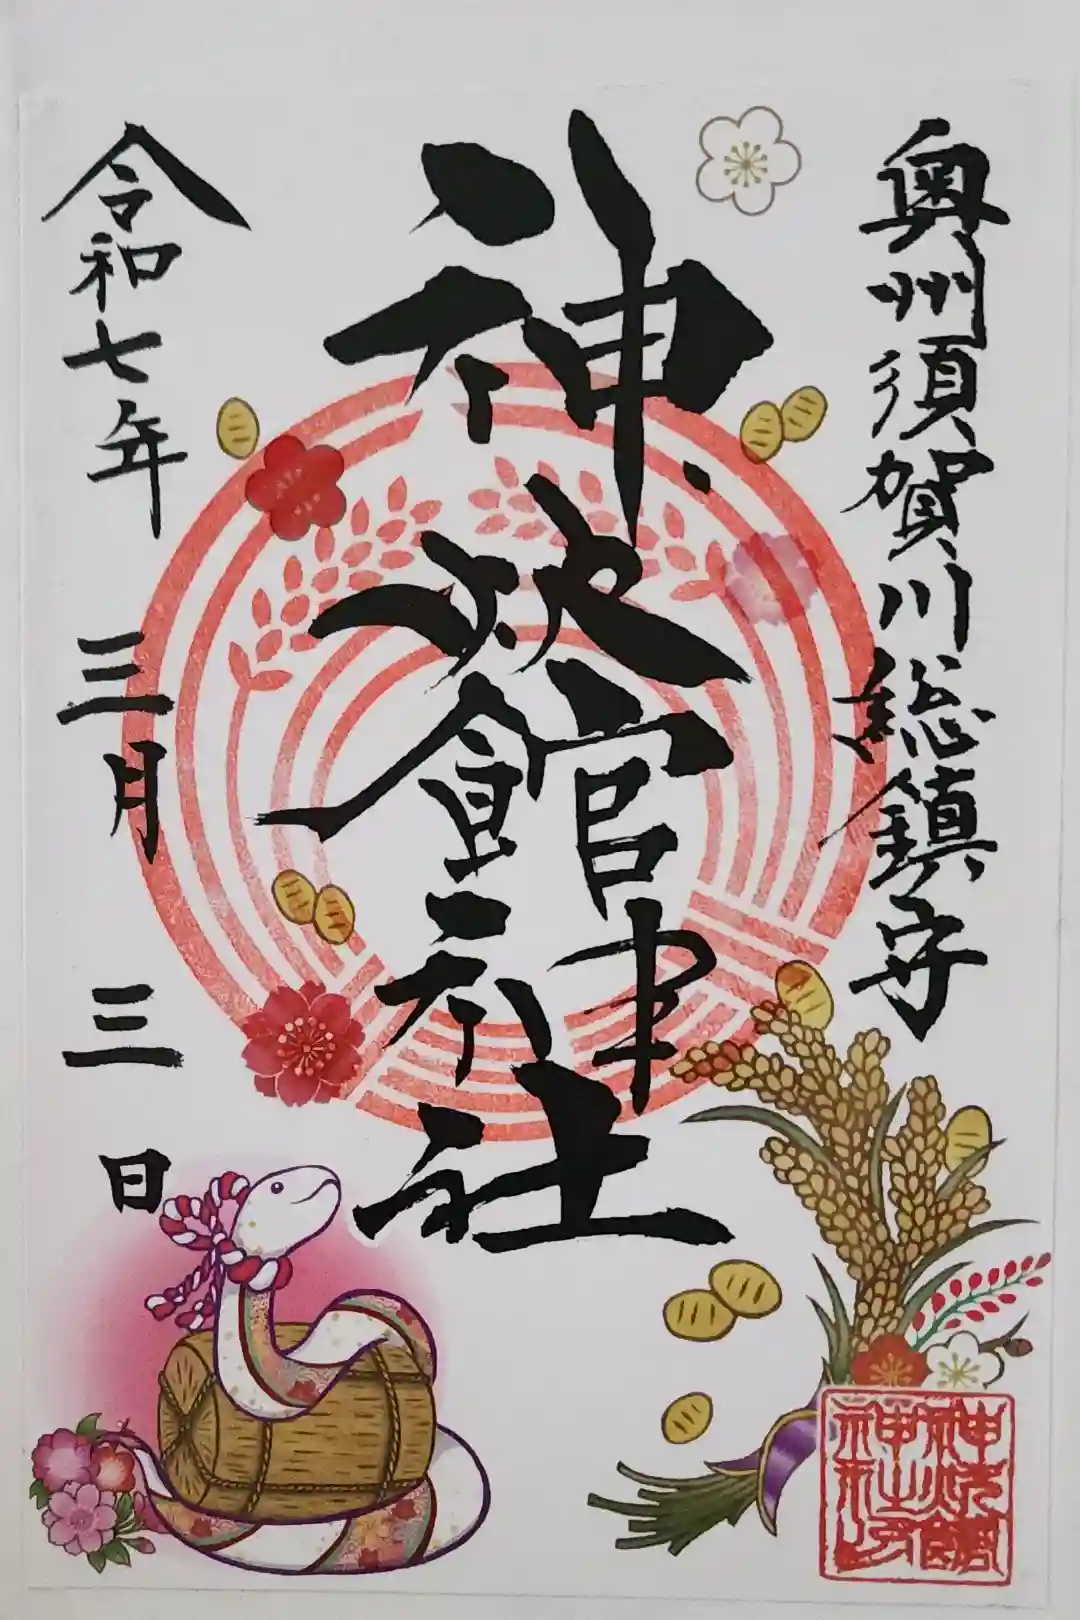 奥州須賀川総鎮守
神炊館神社
令和七年
三月
三
日
神炊館
神社